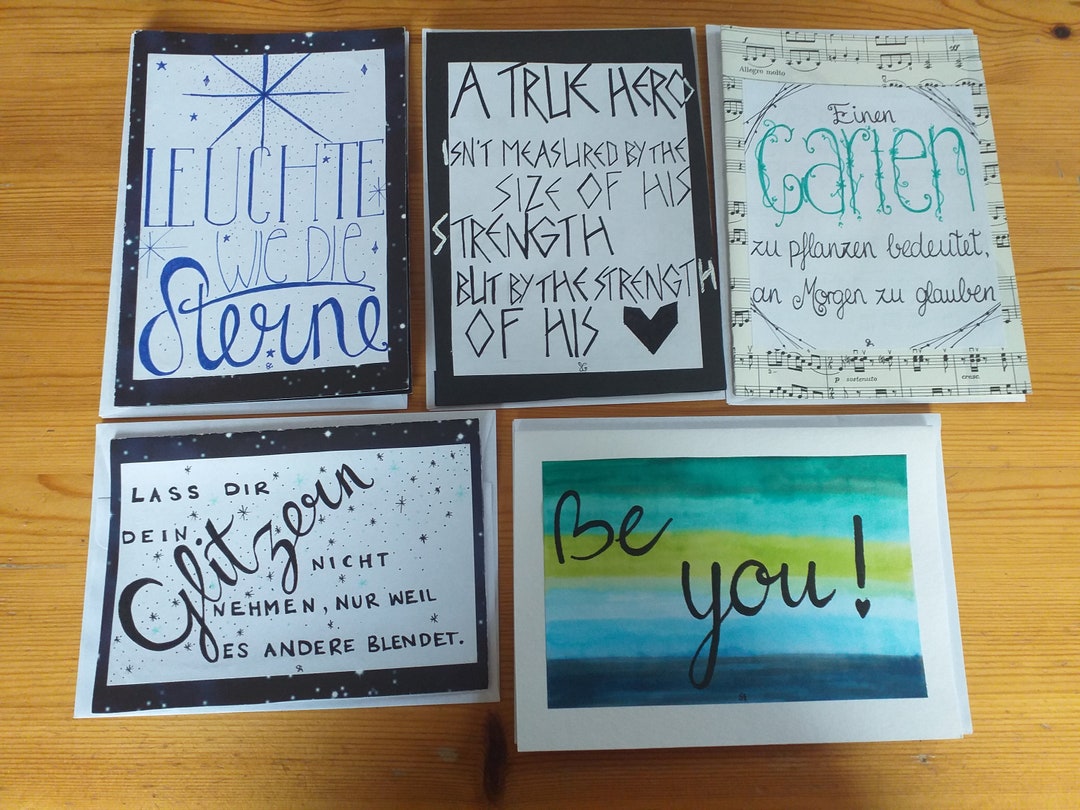 LEUCHTE
WIE DIE
Sterne
A TRUE HERO
ISN'T MEASURED BY THE
SIZE OF HIS
STRENGTH
BUT BY THE STRENGTH
OF HIS
Allegro molto
Einen
Garten
zu pflanzen bedeutet,
an Morgen zu glauben
p sostenuto
cresc.
LASS DIR
DEIN Glitzern
NICHT
NEHMEN, NUR WEIL
ES ANDERE BLENDET.
Be
you!